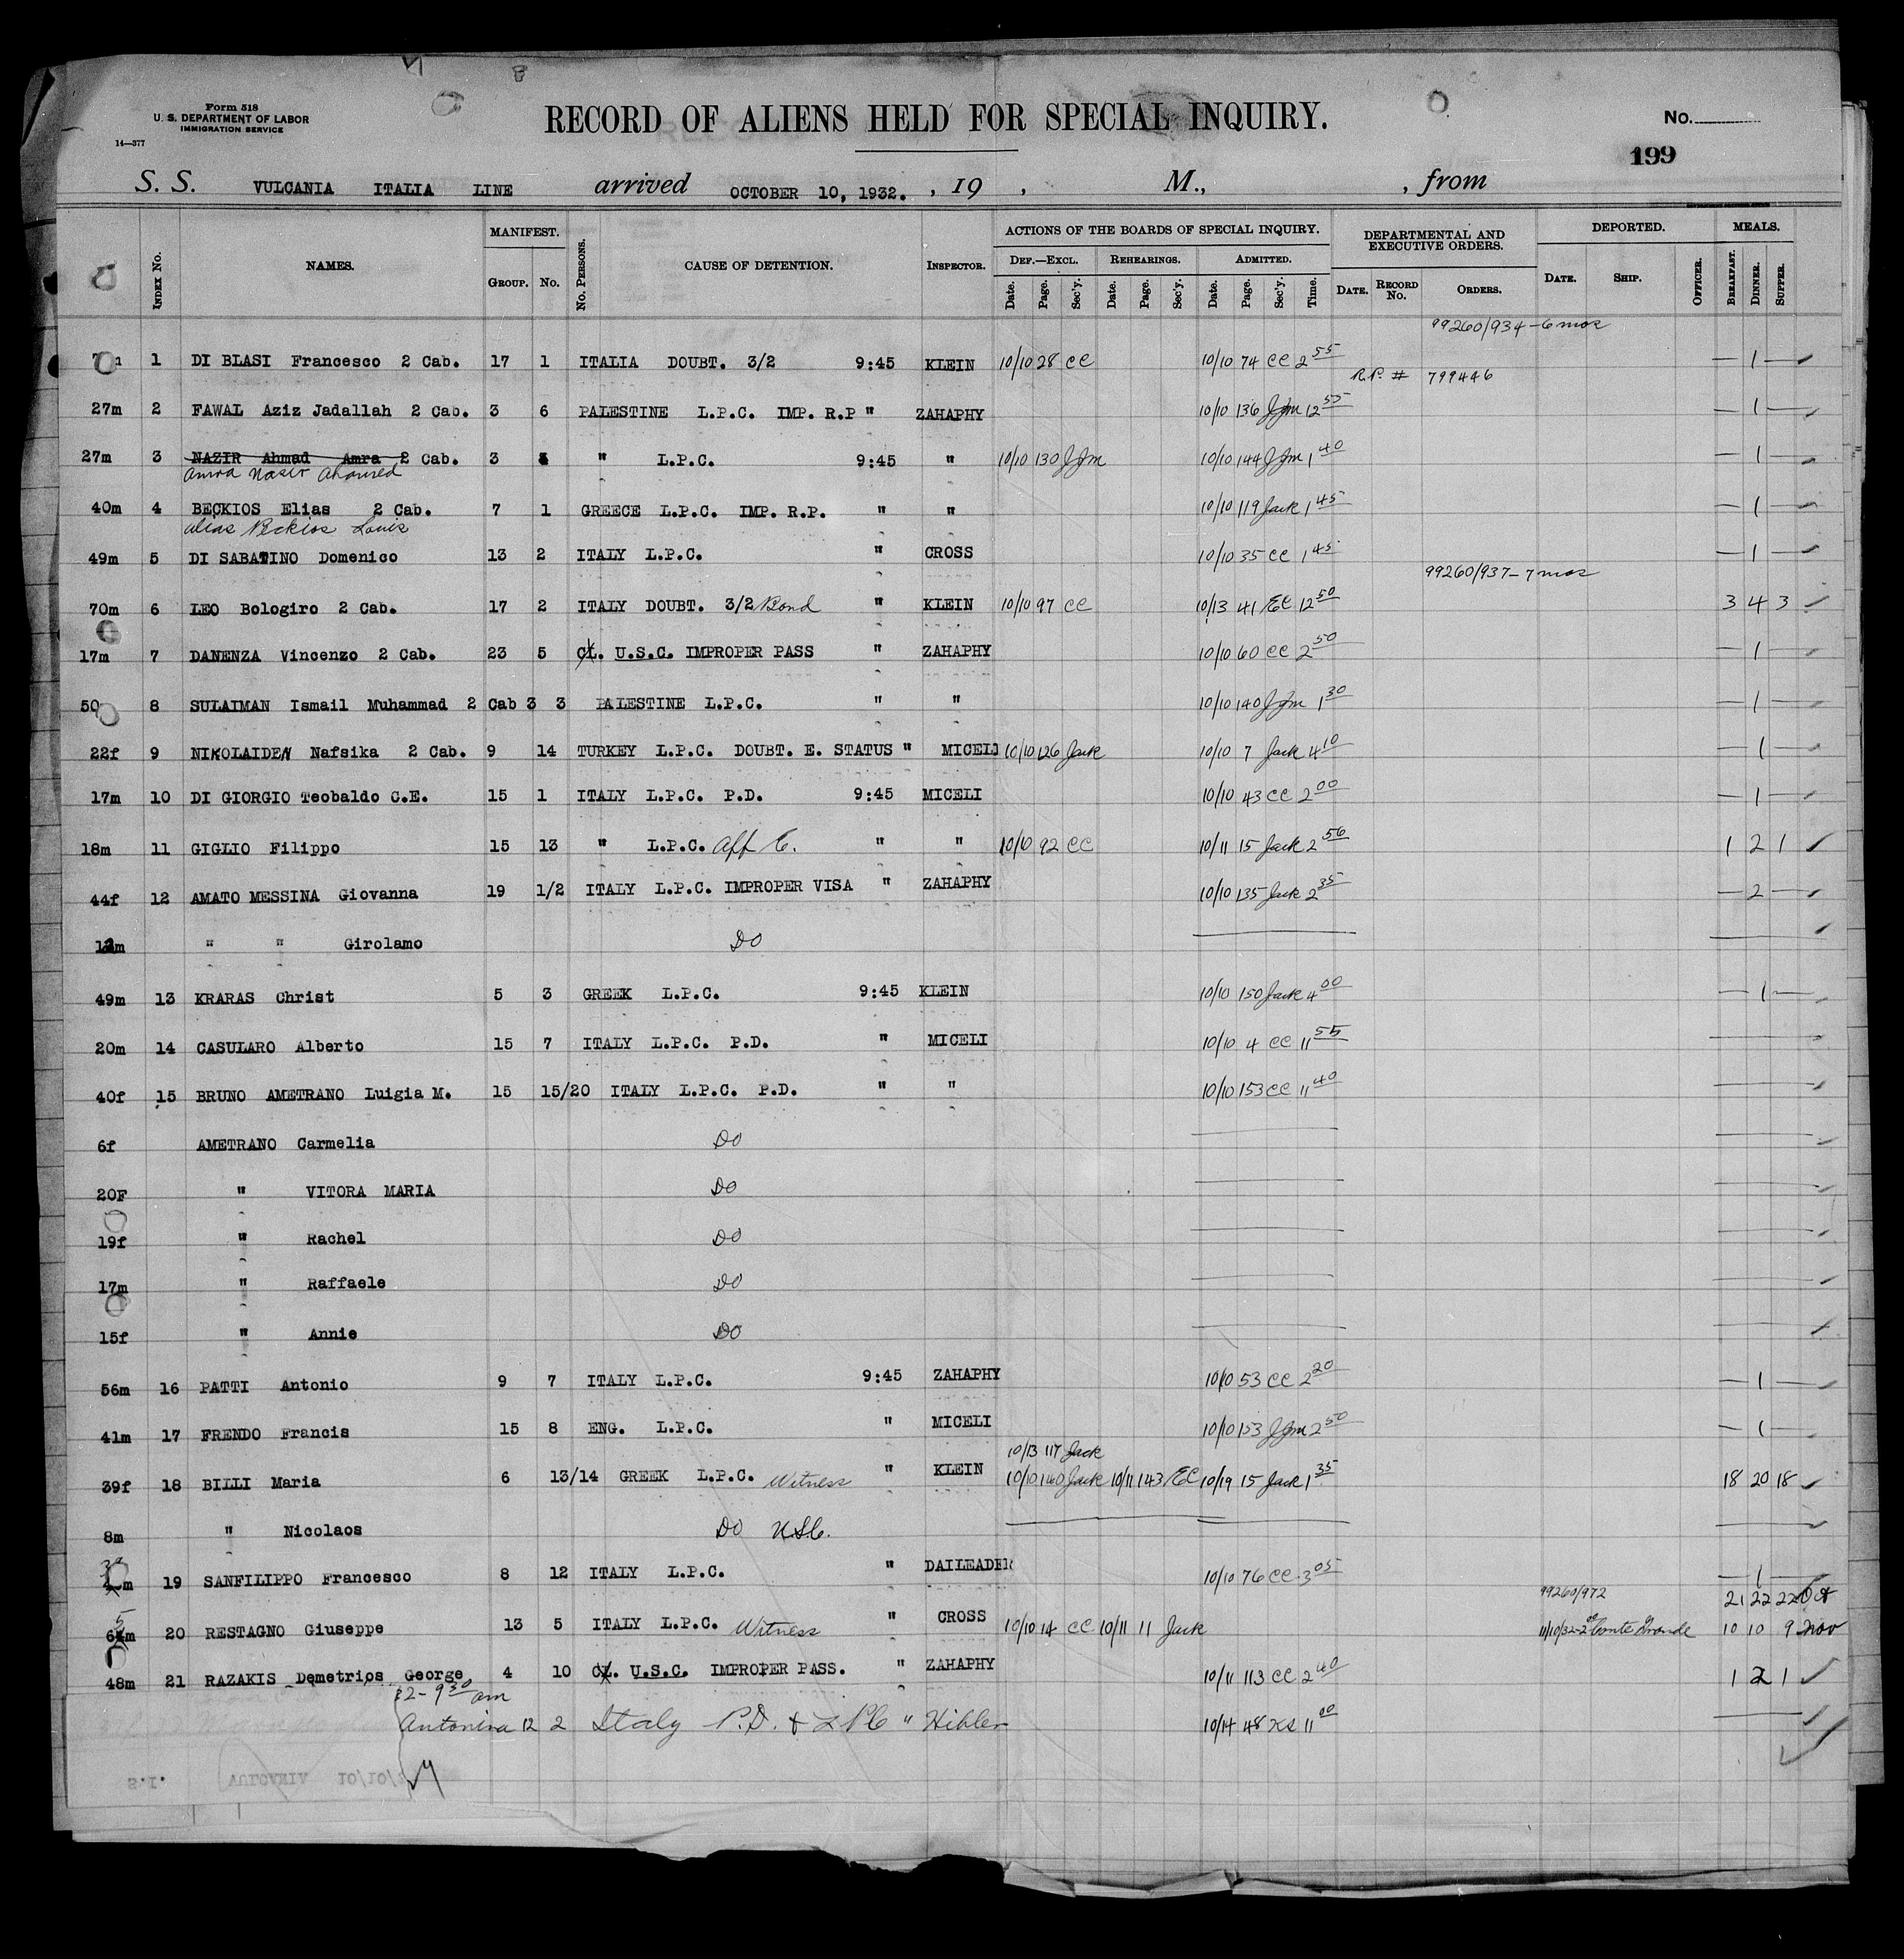 Form 518
U. S. DEPARTMENT OF LABOR
IMMIGRATION SERVICE
14—377
RECORD OF ALIENS HELD FOR SPECIAL INQUIRY.
No.
199
S. S. VULCANIA ITALIA LINE arrived OCTOBER 10, 1932. , 19 , M., , from
INDEX No. NAMES. MANIFEST. GROUP. No. No. PERSONS. CAUSE OF DETENTION. INSPECTOR. ACTIONS OF THE BOARDS OF SPECIAL INQUIRY. DEF.—EXCL. Date. Page. Sec'y. REHEARINGS. Date. Page. Sec'y. ADMITTED. Date. Page. Sec'y. Time. DEPARTMENTAL AND EXECUTIVE ORDERS. DATE. RECORD No. ORDERS. DEPORTED. DATE. SHIP. OFFICER. MEALS. BREAKFAST. DINNER. SUPPER.
99260/934 - 6 mos
1 DI BLASI Francesco 2 Cab. 17 1 ITALIA DOUBT. 3/2 9:45 KLEIN 10/10 28 CC 10/10 74 CC 2 55 — 1 —
R.P. # 799446
27m 2 FAWAL Aziz Jadallah 2 Cab. 3 6 PALESTINE L.P.C. IMP. R.P " ZAHAPHY 10/10 136 JJM 12 55 — 1 —
27m 3 NAZIR Ahmad Amra 2 Cab. 3 " L.P.C. 9:45 " 10/10 130 JJM 10/10 144 JJM 1 40 — 1 —
Amra Nasir Ahamed
40m 4 BECKIOS Elias 2 Cab. 7 1 GREECE L.P.C. IMP. R.P. " " 10/10 119 Jack 1 45 — 1 —
alias Beckios Louis
49m 5 DI SABATINO Domenico 13 2 ITALY L.P.C. " CROSS 10/10 35 CC 1 45 — 1 —
99260/937 - 7 mos
70m 6 LEO Bologiro 2 Cab. 17 2 ITALY DOUBT. 3/2 Bond " KLEIN 10/10 97 CC 10/13 41 EC 12 50 3 4 3
17m 7 DANENZA Vincenzo 2 Cab. 23 5 CL. U.S.C. IMPROPER PASS " ZAHAPHY 10/10 60 CC 2 50 — 1 —
50 8 SULAIMAN Ismail Muhammad 2 Cab 3 3 PALESTINE L.P.C. " " 10/10 140 JJM 1 30 — 1 —
22f 9 NIKOLAIDEN Nafsika 2 Cab. 9 14 TURKEY L.P.C. DOUBT. E. STATUS " MICELI 10/10 126 Jack 10/10 7 Jack 4 10 — 1 —
17m 10 DI GIORGIO Teobaldo C.E. 15 1 ITALY L.P.C. P.D. 9:45 MICELI 10/10 43 CC 2 00 — 1 —
18m 11 GIGLIO Filippo 15 13 " L.P.C. Aff C. " " 10/10 92 CC 10/11 15 Jack 2 56 1 2 1
44f 12 AMATO MESSINA Giovanna 19 1/2 ITALY L.P.C. IMPROPER VISA " ZAHAPHY 10/10 135 Jack 2 35 — 2 —
" " Girolamo DO
49m 13 KRARAS Christ 5 3 GREEK L.P.C. 9:45 KLEIN 10/10 150 Jack 4 00 — 1 —
20m 14 CASULARO Alberto 15 7 ITALY L.P.C. P.D. " MICELI 10/10 4 CC 11 55
40f 15 BRUNO AMETRANO Luigia M. 15 15/20 ITALY L.P.C. P.D. " " 10/10 153 CC 11 40
6f AMETRANO Carmelia DO
20F " VITORA MARIA DO
19f " Rachel DO
17m " Raffaele DO
15f " Annie DO
56m 16 PATTI Antonio 9 7 ITALY L.P.C. 9:45 ZAHAPHY 10/10 53 CC 2 20 — 1 —
41m 17 FRENDO Francis 15 8 ENG. L.P.C. " MICELI 10/10 153 JJM 2 50 — 1 —
10/13 117 Jack
39f 18 BILLI Maria 6 13/14 GREEK L.P.C. Witness " KLEIN 10/10 140 Jack 10/11 143 EC 10/19 15 Jack 1 35 18 20 18
8m " Nicolaos DO U.S.C.
19 SANFILIPPO Francesco 8 12 ITALY L.P.C. " DAILEADER 10/10 76 CC 3 05 — 1 —
99260/972 21 22 22 Oct
20 RESTAGNO Giuseppe 13 5 ITALY L.P.C. Witness " CROSS 10/10 14 CC 10/11 11 Jack 11/10/32 Conte Grande 10 10 9 Nov
48m 21 RAZAKIS Demetrios George 4 10 CL. U.S.C. IMPROPER PASS. " ZAHAPHY 10/11 113 CC 2 40 1 2 1
9 30 am
Antonina 12 2 Italy P.D. & LPC " Hibler 10/14 48 11 00
S.I. VULCANIA 10/10/